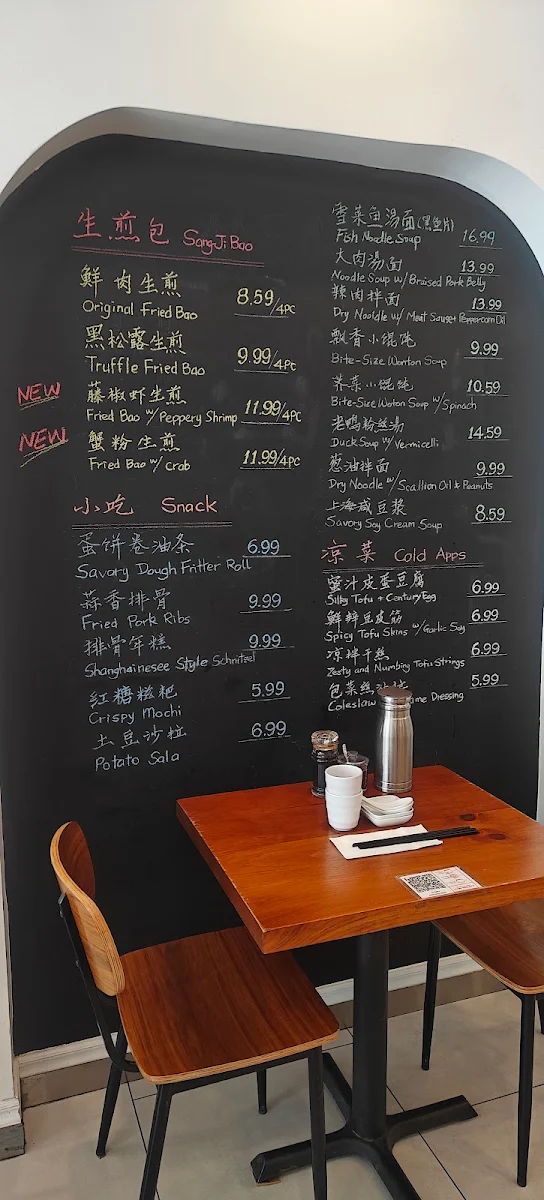 生煎包 SangJi Bao
鲜肉生煎
Original Fried Bao 8.59/4PC
黑松露生煎
Truffle Fried Bao 9.99/4PC
NEW 藤椒虾生煎
Fried Bao w/ Peppery Shrimp 11.99/4PC
NEW 蟹粉生煎
Fried Bao w/ crab 11.99/4PC
小吃 Snack
蛋饼卷油条 6.99
Savory Dough Fritter Roll
蒜香排骨 9.99
Fried Pork Ribs
排骨年糕 9.99
Shanghainesee Style Schnitzel
红糖糍粑 5.99
Crispy Mochi
土豆沙拉 6.99
Potato Sala
雪菜鱼汤面(黑鱼片)
Fish Noodle Soup 16.99
大肉汤面 13.99
Noodle Soup w/ Braised Pork Belly
辣肉拌面 13.99
Dry Noodle w/ Meat Peppercorn Oil
飘香小馄饨 9.99
Bite-Size Wonton Soup
荠菜小馄饨 10.59
Bite-Size Woton Soup w/Spinach
老鸭粉丝汤 14.59
Duck Soup w/ Vermicelli
葱油拌面 9.99
Dry Noodle w/ Scallion Oil & Peanuts
上海咸豆浆 8.59
Savory Soy Cream Soup
凉菜 Cold Apps
蜜汁皮蛋豆腐 6.99
Silky Tofu + Century Egg
鲜辣豆皮筋 6.99
Spicy Tofu Skins w/Garlic Soy
凉拌干丝 6.99
Zesty and Numbing Tofu Strings
包菜丝 5.99
Coleslaw Dressing